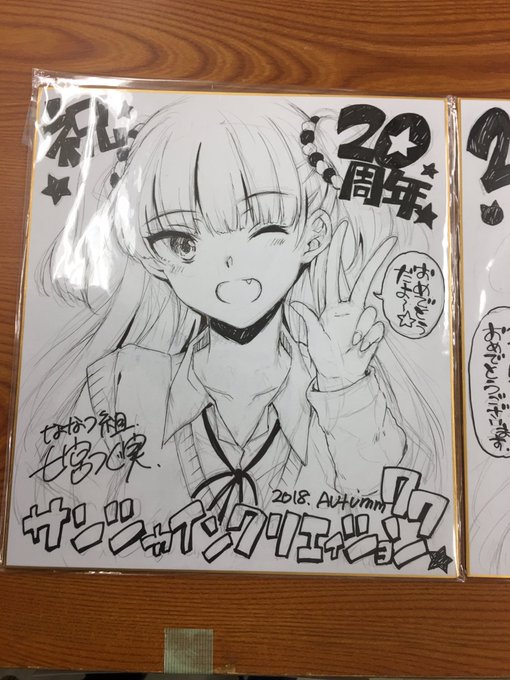 祝
20
周年
おめでとう
だよ〜☆
ななつ組
七宮つぐ実.
2018. Autumn
サンシャインクリエイション 77
2
おめでとう
ございます。